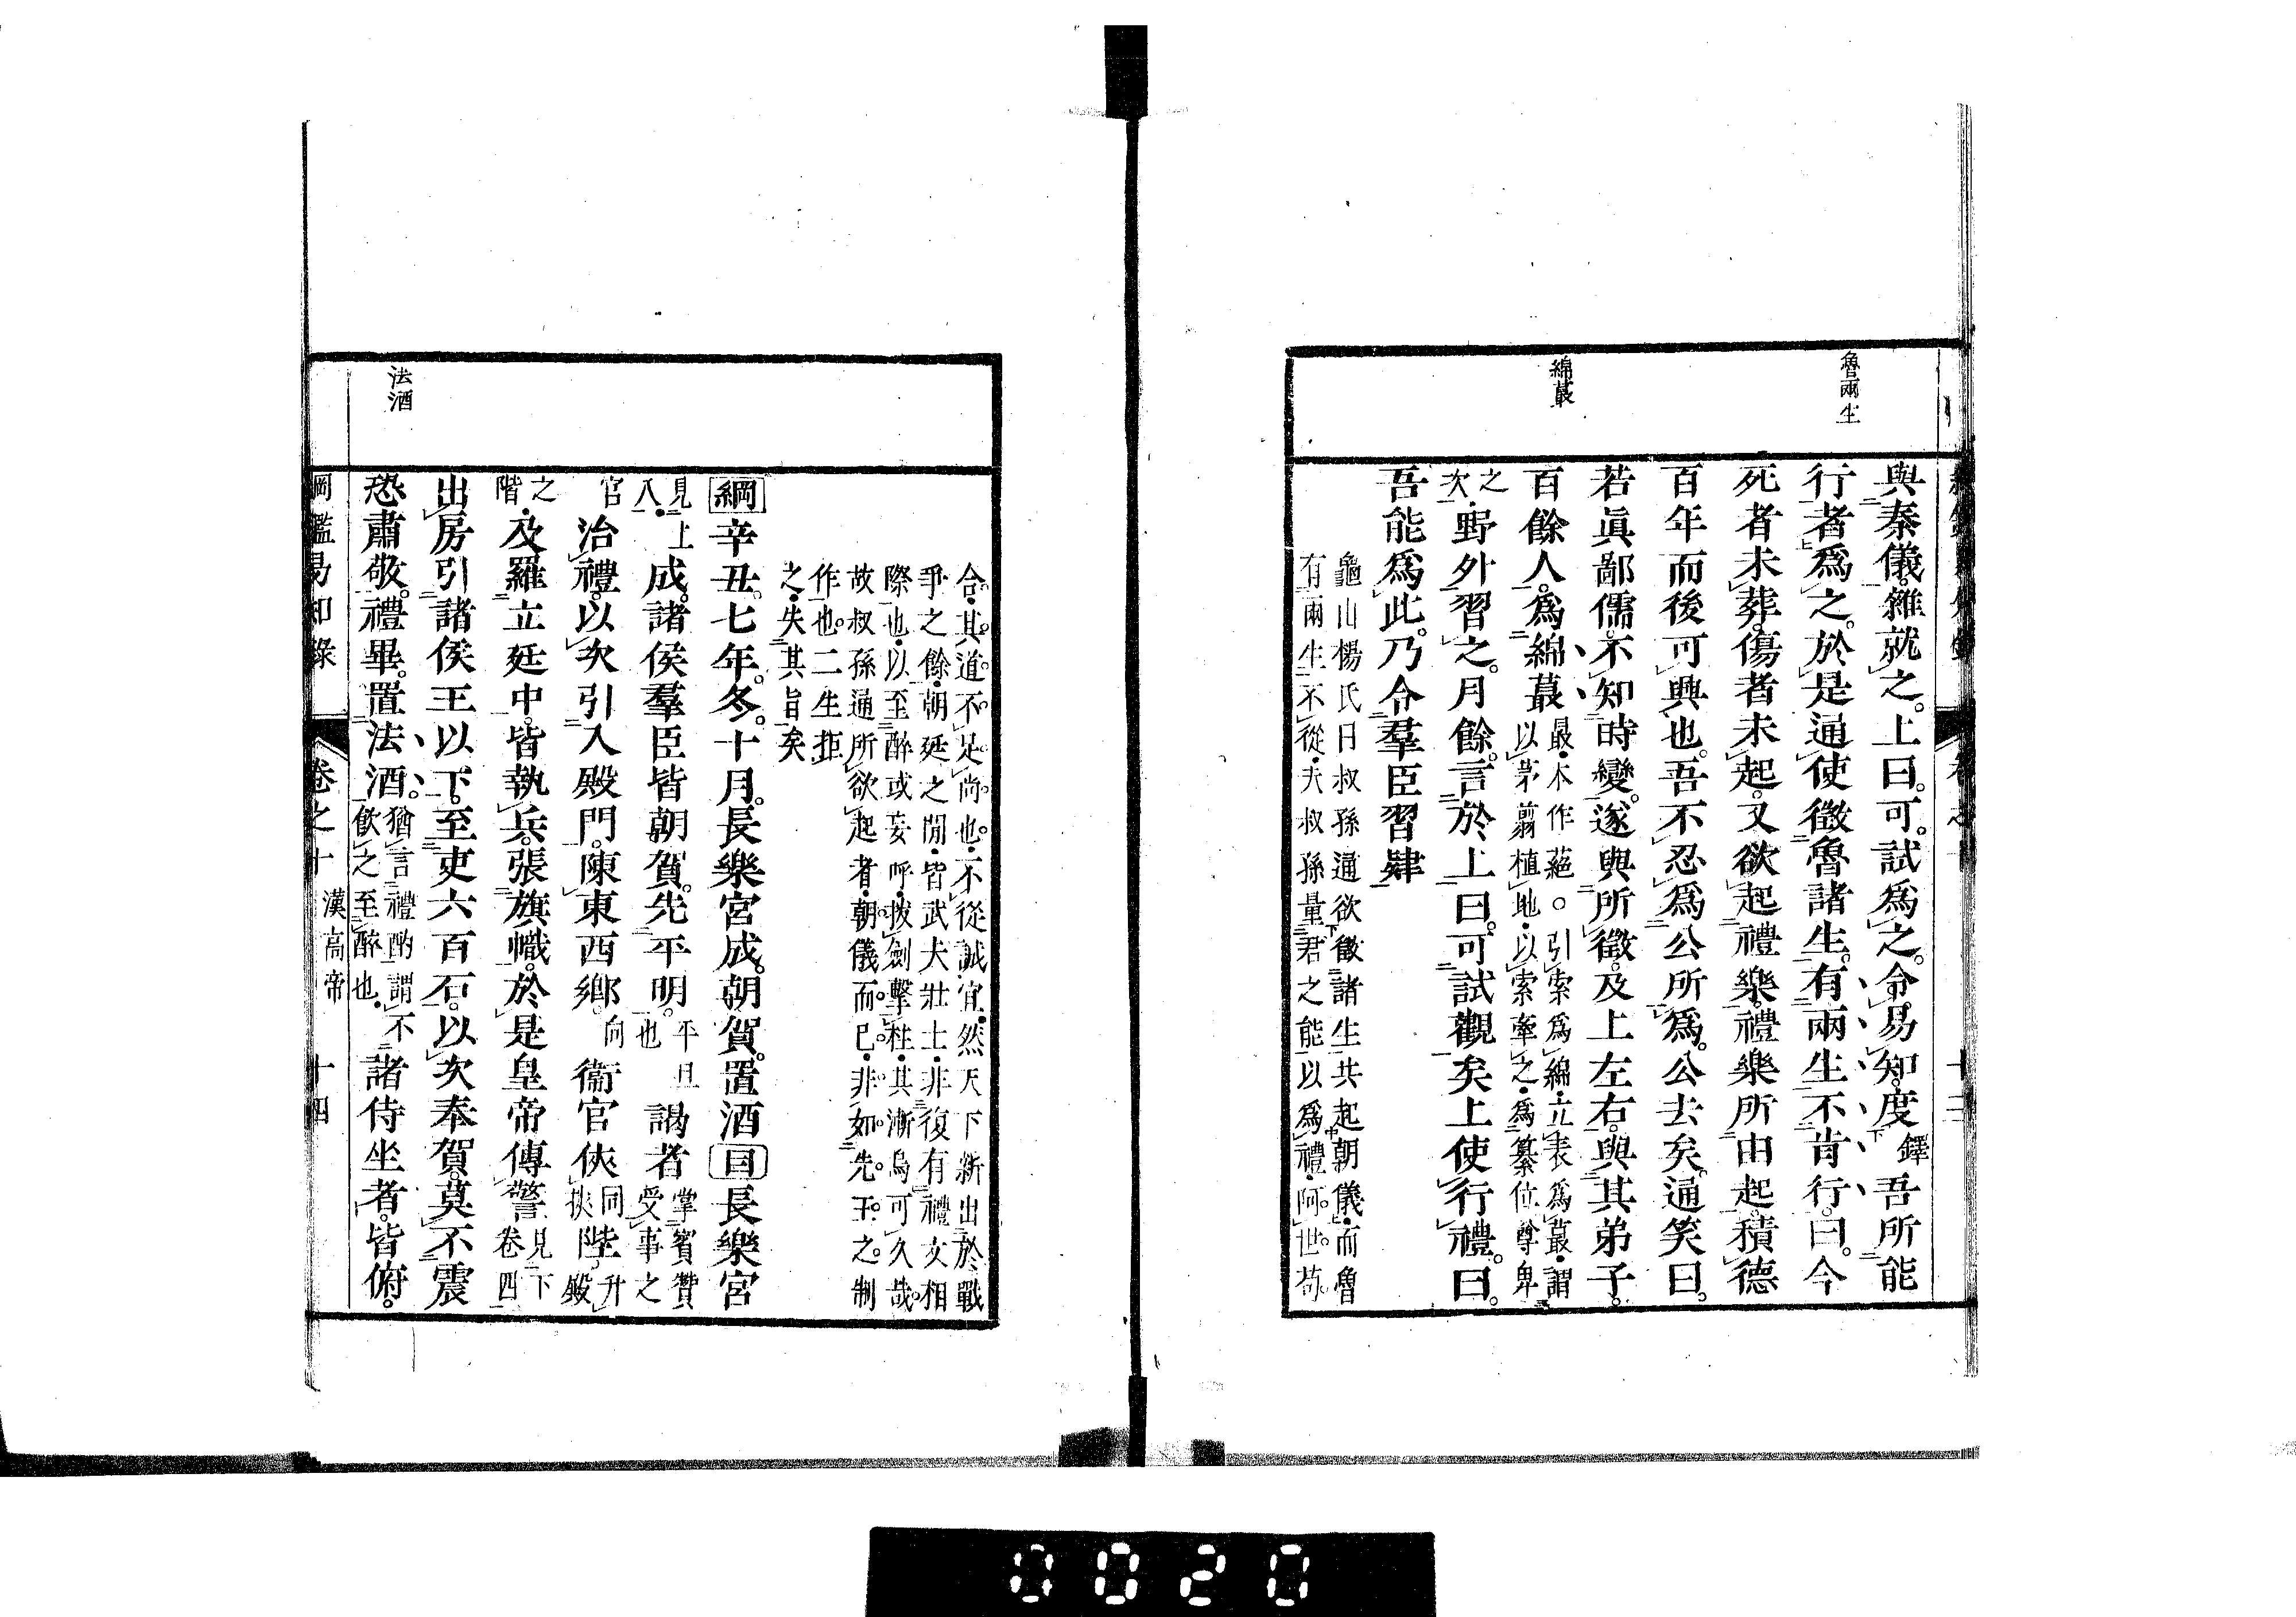 魯兩生
綿蕞
與秦儀。雜就之。上曰。可。試爲之。令易知。度鐸吾所能
行者爲之。於是通使徵魯諸生。有兩生不肯行。曰。今
死者未葬。傷者未起。又欲起禮樂。禮樂所由起。積德
百年而後可興也。吾不忍爲公所爲。公去矣。通笑曰。
若眞鄙儒。不知時變。遂與所徵。及上左右。與其弟子。
百餘人。爲綿蕞蕞・本作蕝。引索爲綿・立表爲蕞・謂
以茅翦植地・以索牽之・爲纂位尊卑
之次・野外習之。月餘。言於上曰。可試觀矣。上使行禮。曰。
吾能爲此。乃令羣臣習肄
龜山楊氏曰叔孫通欲徵諸生共起朝儀・而魯
有兩生不從・夫叔孫量君之能以爲禮・阿世苟
合。其道不足尚也。不從誠宜・然天下新出於戰
爭之餘・朝廷之閒・皆武夫壯士・非復有禮文相
際也・以至醉或妄呼・拔劍擊柱・其漸烏可久哉。
故叔孫通所欲起者・朝儀而已・非如先王之制
作也。二生拒
之・失其旨矣
綱辛丑。七年。冬。十月。長樂宮成。朝賀。置酒目長樂宮
見上八・成。諸侯羣臣皆朝賀。先平明。平旦也謁者掌賓贊受事之
官治禮。以次引入殿門。陳東西鄉。向衞官俠同挾陛升殿
之階・及羅立廷中。皆執兵。張旗幟。於是皇帝傳警見下卷四
出房。引諸侯王以下。至吏六百石。以次奉賀。莫不震
恐肅敬。禮畢。置法酒。猶言禮酌・謂不飮之至醉也・諸侍坐者。皆俯。
法酒
綱鑑易知錄 卷之十 漢高帝 十四